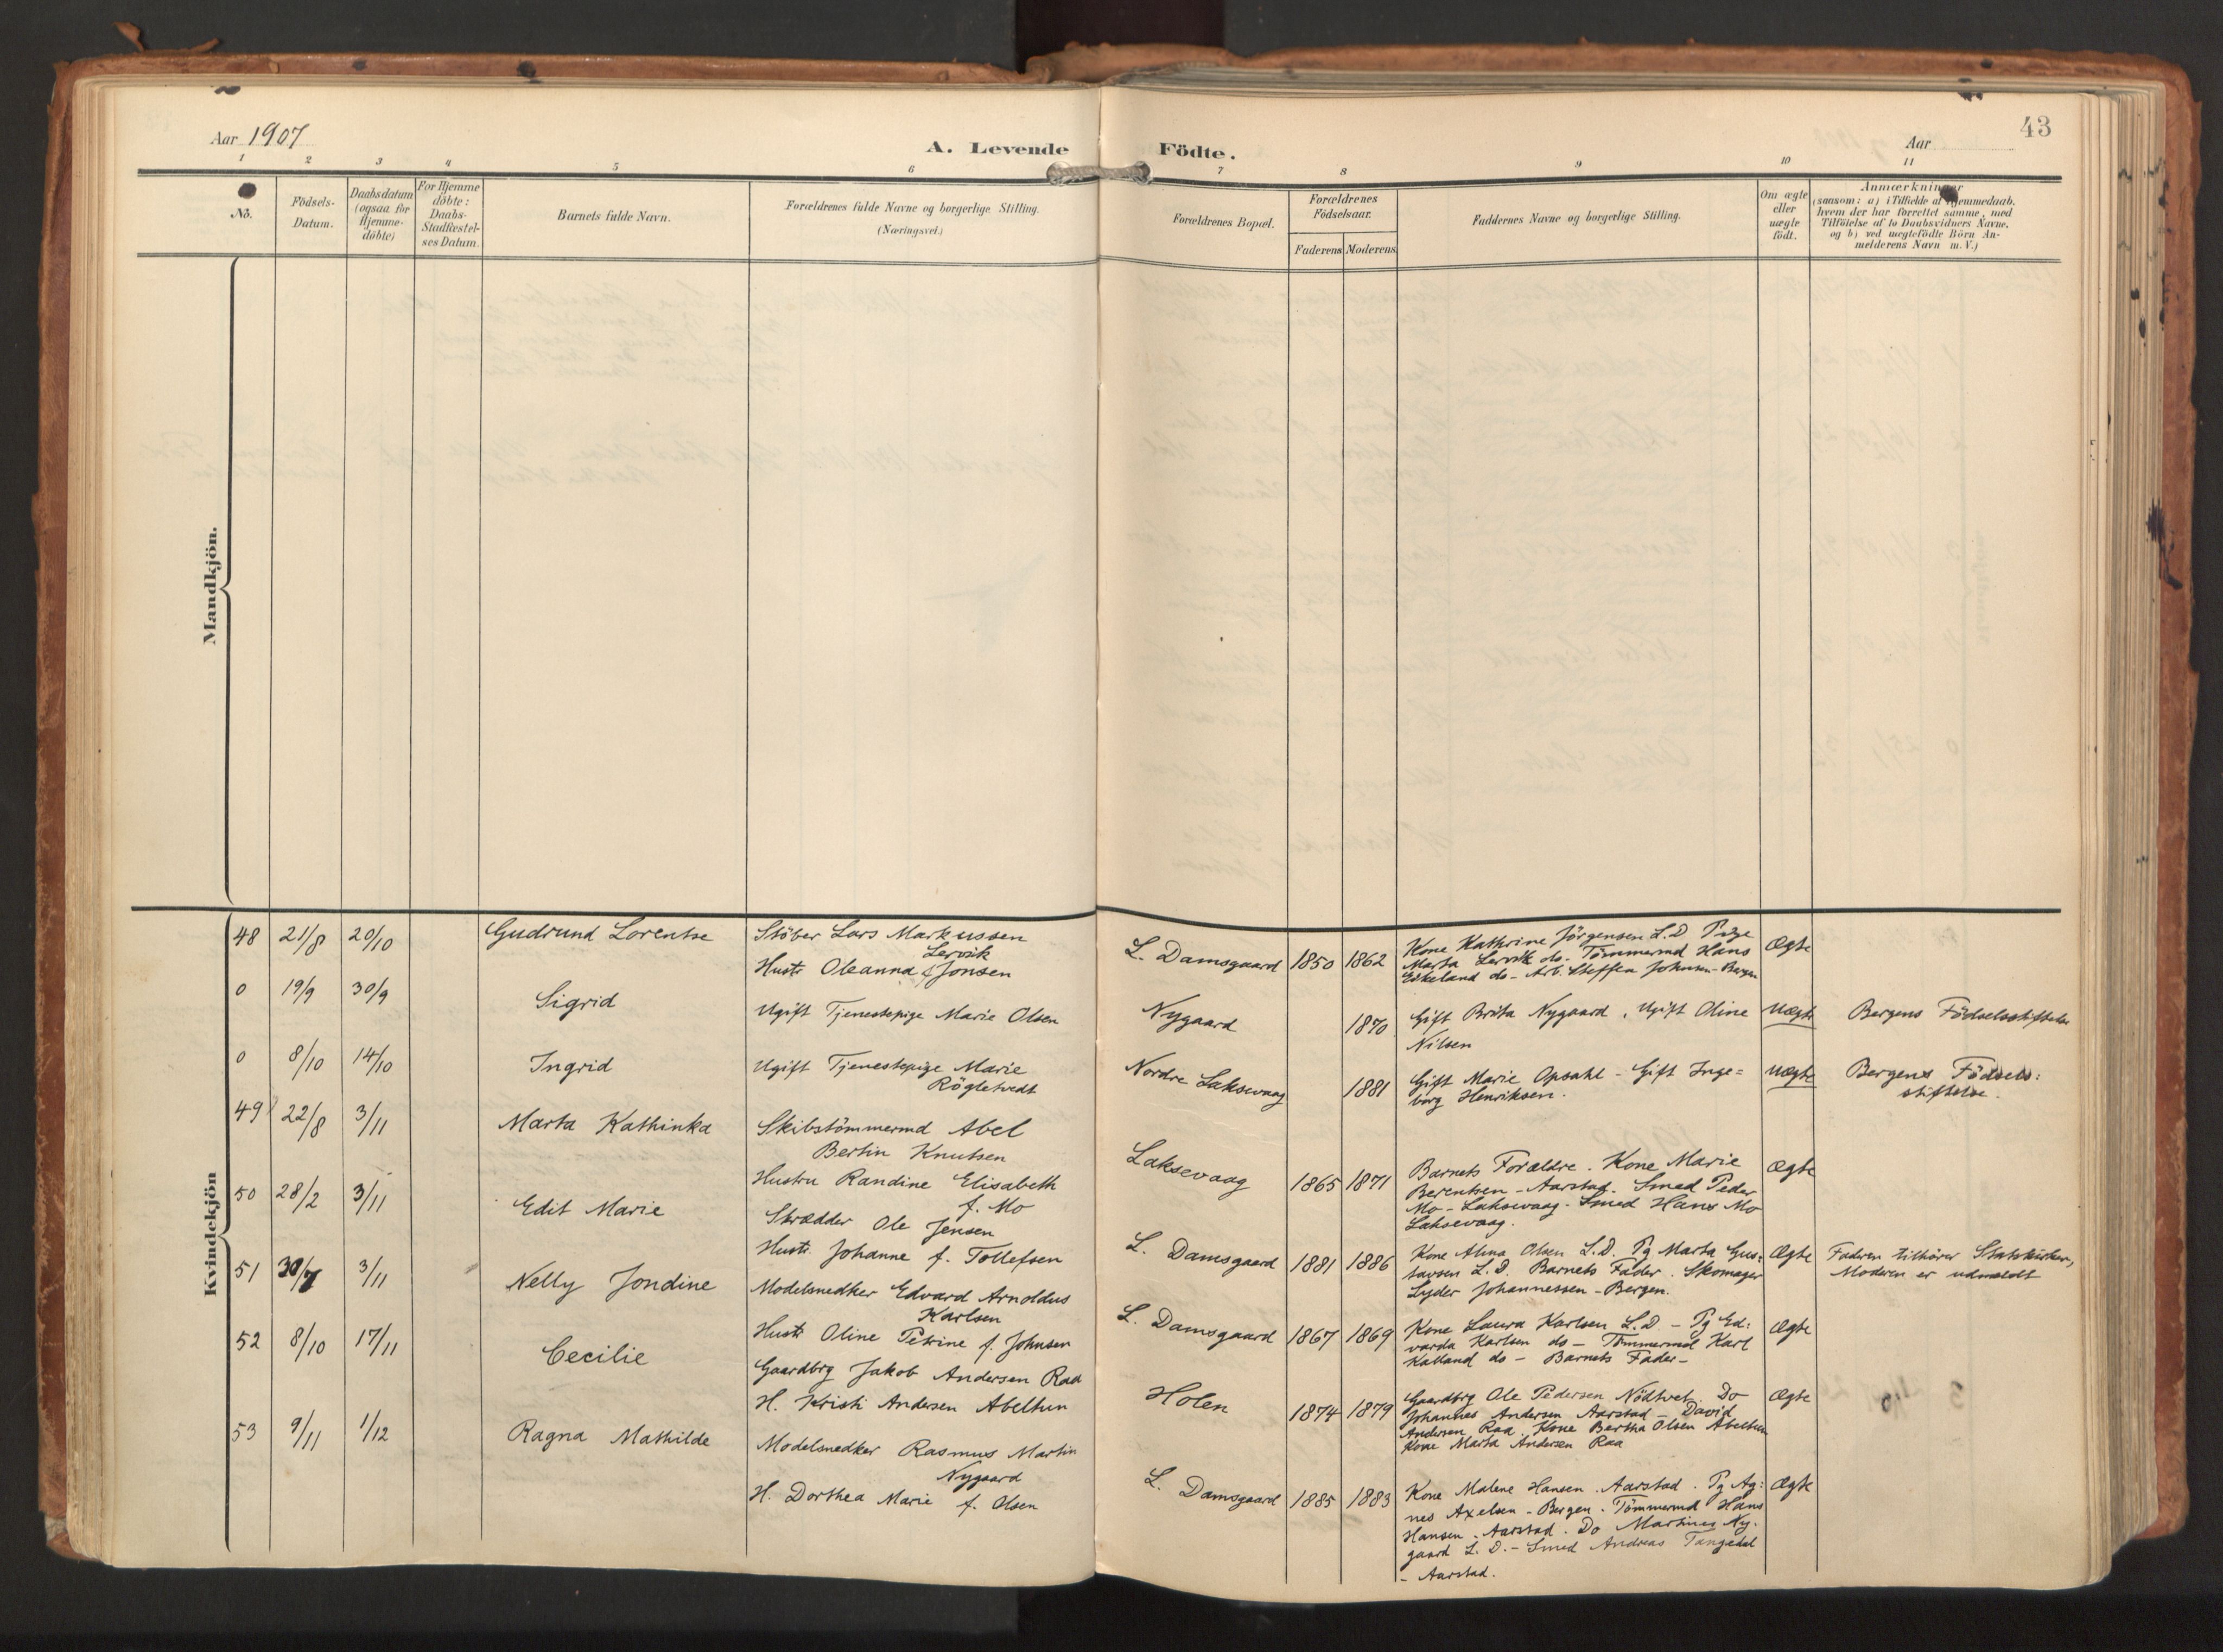 Aar 1907
A. Levende Födte.
Aar
43
1 2 3 4 5 6 7 8 9 10 11
No.
Födsels-Datum.
Daabsdatum (ogsaa for Hjemme-döbte)
For Hjemme döbte: Daabs-Stadfæstel-ses Datum.
Barnets fulde Navn.
Forældrenes fulde Navne og borgerlige Stilling.
(Næringsvei.)
Forældrenes Bopæl.
Forældrenes Födselsaar.
Faderens Moderens
Faddernes Navne og borgerlige Stilling.
Om ægte eller uægte födt.
Anmærkninger
(saasom: a) i Tilfælde af Hjemmedaab,
hvem der har forrettet samme, med
Tilföielse af to Daabsvidners Navne,
og b) ved uægtefödte Börn An-
melderens Navn m. V.)
Mandkjön.
Kvindekjön
48 21/8 20/10 Gudrund Lorentse
Stöber Lars Markussen
Lervik
Hustr Oleanna f Jonsen
L. Damsgaard 1850 1862
Kone Kathrine Jörgensen L.D Pige
Marta Lervik do. Tömmermd Hans
Eskeland do - Arb. Steffen Johnsen - Bergen
Ægte
0 19/9 30/9 Sigrid
Ugift Tjenestepige Marie Olsen
Nygaard 1870
Gift Brita Nygaard, Ugift Oline
Nilsen
Uægte
Bergens Födselsstiftelse
0 8/10 14/10 Ingrid
Ugift Tjenestepige Marie
Rögletvedt
Nordre Laksevaag 1881
Gift Marie Opsahl - Gift Inge=
borg Henriksen.
Uægte
Bergens Födsels:
stiftelse.
49 22/8 3/11 Marta Kathinka
Skibstömmermd Abel
Bertin Knutsen
Hustru Randine Elisabeth
f. Mo
Laksevaag 1865 1871
Barnets Forældre. Kone Marie
Berentsen - Aarstad. Smed Peder
Mo - Laksevaag - Smed Hans Mo
Laksevaag.
Ægte
50 28/2 3/11 Edit Marie
Skrædder Ole Jensen
Hustr. Johanne f. Tollefsen
L. Damsgaard 1881 1886
Kone Alma Olsen L.D. Pg Marta Gus:
tavsen L.D. Barnets Fader. Skomager
Lyder Johannessen - Bergen.
Ægte
Faderen tilhører Statskirken,
Moderen er udmeldt
51 30/7 3/11 Nelly Jondine
Modelsnedker Edvard Arnoldus
Karlsen
Hustr Oline Petrine f. Johnsen
L. Damsgaard 1867 1869
Kone Laura Karlsen L.D - Pg Ed:
varda Karlsen do - Tömmermd Karl
Kalland do - Barnets Fader -
Ægte
52 8/10 17/11 Cecilie
Gaardbrg Jakob Andersen Raa
H. Kristi Andersen Abeltun
Holen 1874 1879
Gaardbrg Ole Pedersen Nödtvet. Do
Johannes Andersen Aarstad - David
Andersen Raa. Kone Bertha Olsen Abeltun
Kone Marta Andersen Raa
Ægte
53 9/11 1/12 Ragna Mathilde
Modelsnedker Rasmus Martin
Nygaard
H. Dorthea Marie f. Olsen
L. Damsgaard 1885 1883
Kone Malene Hansen. Aarstad. Pg Ag:
nes Axelsen - Bergen. Tömmermd Hans
Hansen. Aarstad. Do Martinus Ny.
gaard L.D. - Smed Andreas Tangedal
- Aarstad.
Ægte